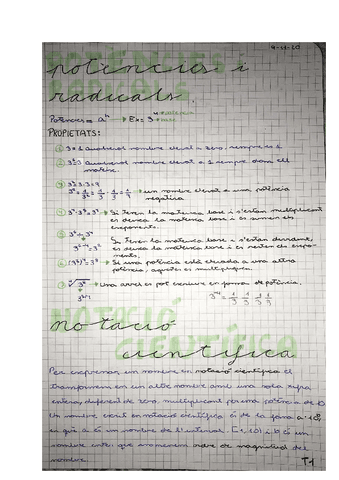 4-11-20
potències i
radicals.
Potències = aⁿ → Ex: 3
PROPIETATS:
① 3⁰=1 Qualsevol nombre elevat a zero, sempre és 1
② 3¹=3 Qualsevol nombre elevat a 1 sempre dona ell
mateix.
③ 3²=3·3=9
un nombre elevat a una potència
negativa
④ → Si tenen la mateixa base i s'estan multiplicant
es deixa la mateixa base i es sumen els
exponents.
⑤ Si tenen la mateixa base i s'estan dividint,
es deixa la mateixa base i es resten els expo-
nents.
⑥ → Si una potència està elevada a una altra
potència, aquestes es multipliquen.
⑦ → Una arrel es pot escriure en forma de potència.
notació
científica
Per expressar un nombre en notació científica el
transformem en un altre nombre amb una sola xifra
entera, diferent de zero, multiplicat per una potència de 10
Un nombre escrit en notació científica és de la forma a·10ᵇ,
en què a és un nombre de l'interval [1,10) i b és un
nombre enter que anomenem ordre de magnitud del
nombre.
T1